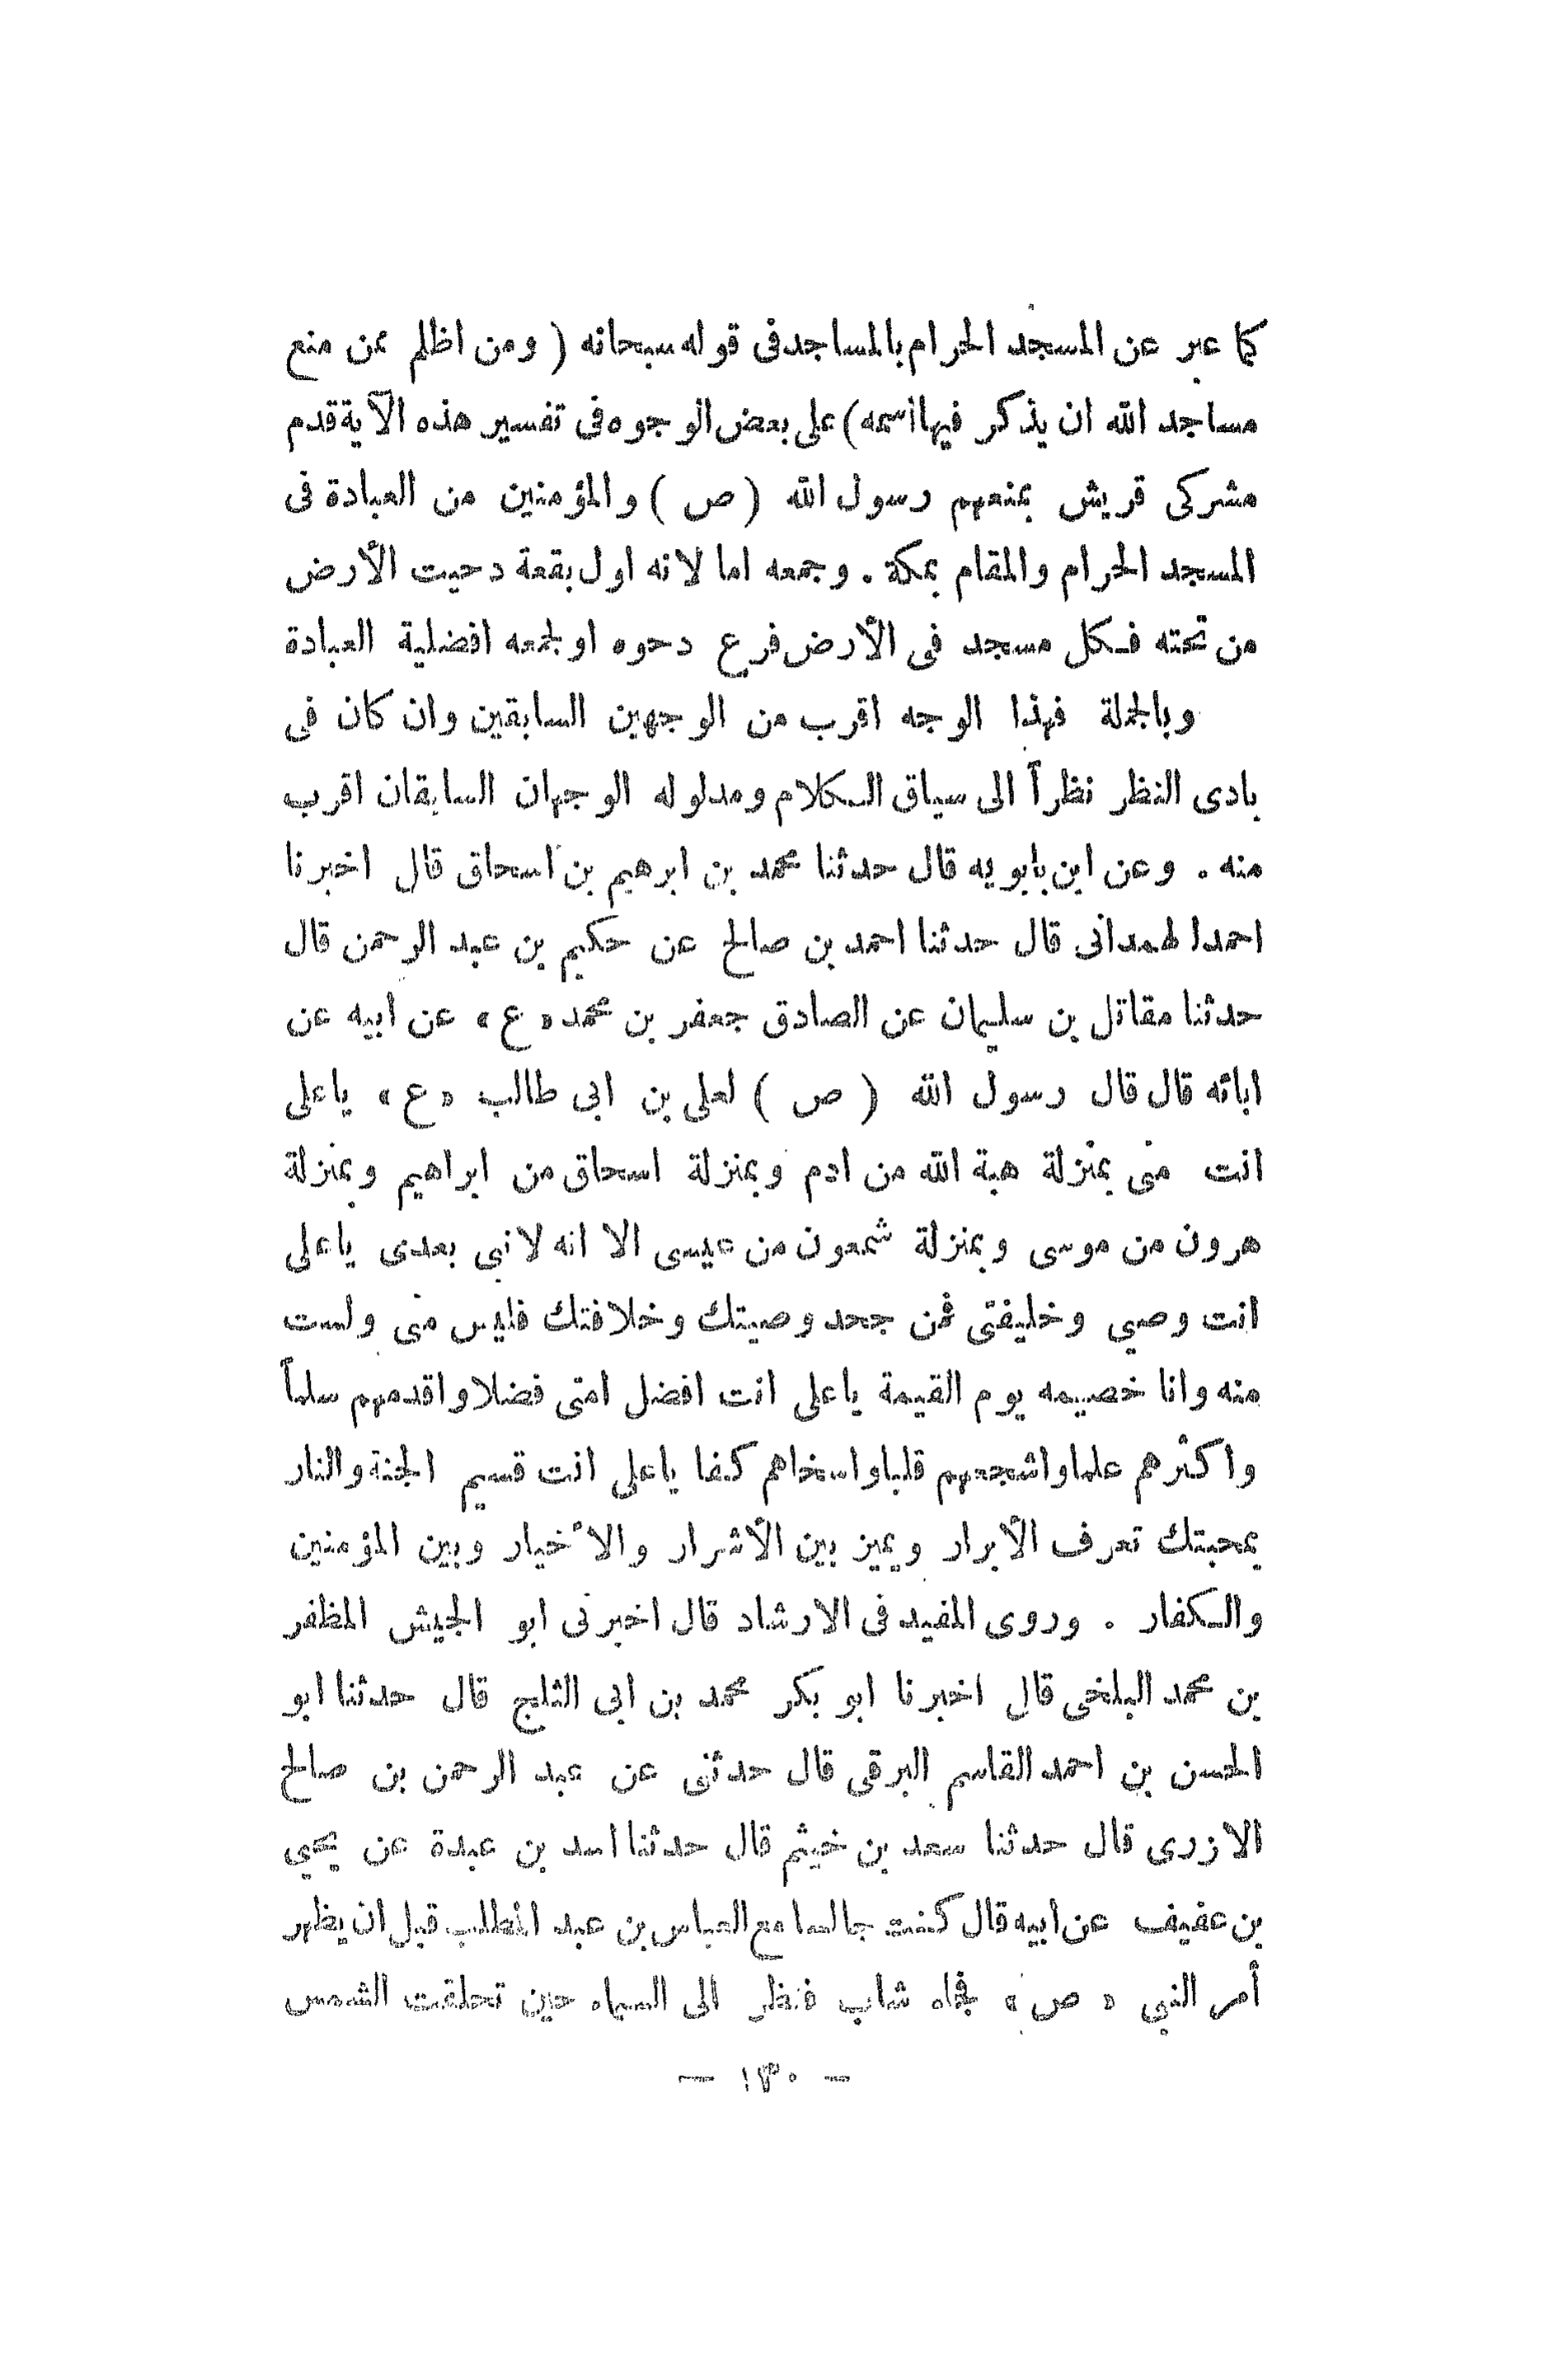 كما عبر عن المسجد الحرام بالمساجد فى قوله سبحانه ( ومن اظلم ممن منع
مساجد الله ان يذكر فيها اسمه ) على بعض الوجوه فى تفسير هذه الآية قدم
مشركى قريش بمنعهم رسول الله ( ص ) والمؤمنين من العبادة فى
المسجد الحرام والمقام بمكة . وجمعه اما لانه اول بقعة دحيت الأرض
من تحته فكل مسجد فى الأرض فرع دحوه او لجمعه افضلية العبادة
وبالجملة فهذا الوجه اقرب من الوجهين السابقين وان كان فى
بادى النظر نظراً الى سياق الكلام ومدلوله الوجهان السابقان اقرب
منه . وعن ابن بابويه قال حدثنا محمد بن ابرهيم بن اسحاق قال اخبرنا
احمد الهمدانى قال حدثنا احمد بن صالح عن حكيم بن عبد الرحمن قال
حدثنا مقاتل بن سليمان عن الصادق جعفر بن محمد « ع » عن ابيه عن
ابائه قال قال رسول الله ( ص ) لعلى بن ابى طالب « ع » ياعلى
انت منى بمنزلة هبة الله من ادم وبمنزلة اسحاق من ابراهيم وبمنزلة
هرون من موسى وبمنزلة شمعون من عيسى الا انه لا نبى بعدى ياعلى
انت وصيى وخليفتى فمن جحد وصيتك وخلافتك فليس منى ولست
منه وانا خصيمه يوم القيمة ياعلى انت افضل امتى فضلا واقدمهم سلماً
واكثرهم علما واشجعهم قلبا واسخاهم كفا ياعلى انت قسيم الجنة والنار
بمحبتك تعرف الأبرار ويميز بين الأشرار والأخيار وبين المؤمنين
والكفار . وروى المفيد فى الارشاد قال اخبرنى ابو الجيش المظفر
بن محمد البلخى قال اخبرنا ابو بكر محمد بن ابى الثلج قال حدثنا ابو
الحسن بن احمد القاسم البرقى قال حدثنى عن عبد الرحمن بن صالح
الازرى قال حدثنا سعد بن خيثم قال حدثنا اسد بن عبدة عن يحيى
بن عفيف عن ابيه قال كنت جالسا مع العباس بن عبد المطلب قبل ان يظهر
أمر النبى « ص » فجاء شاب فنظر الى السماء حين تحلقت الشمس
— ١٣٠ —